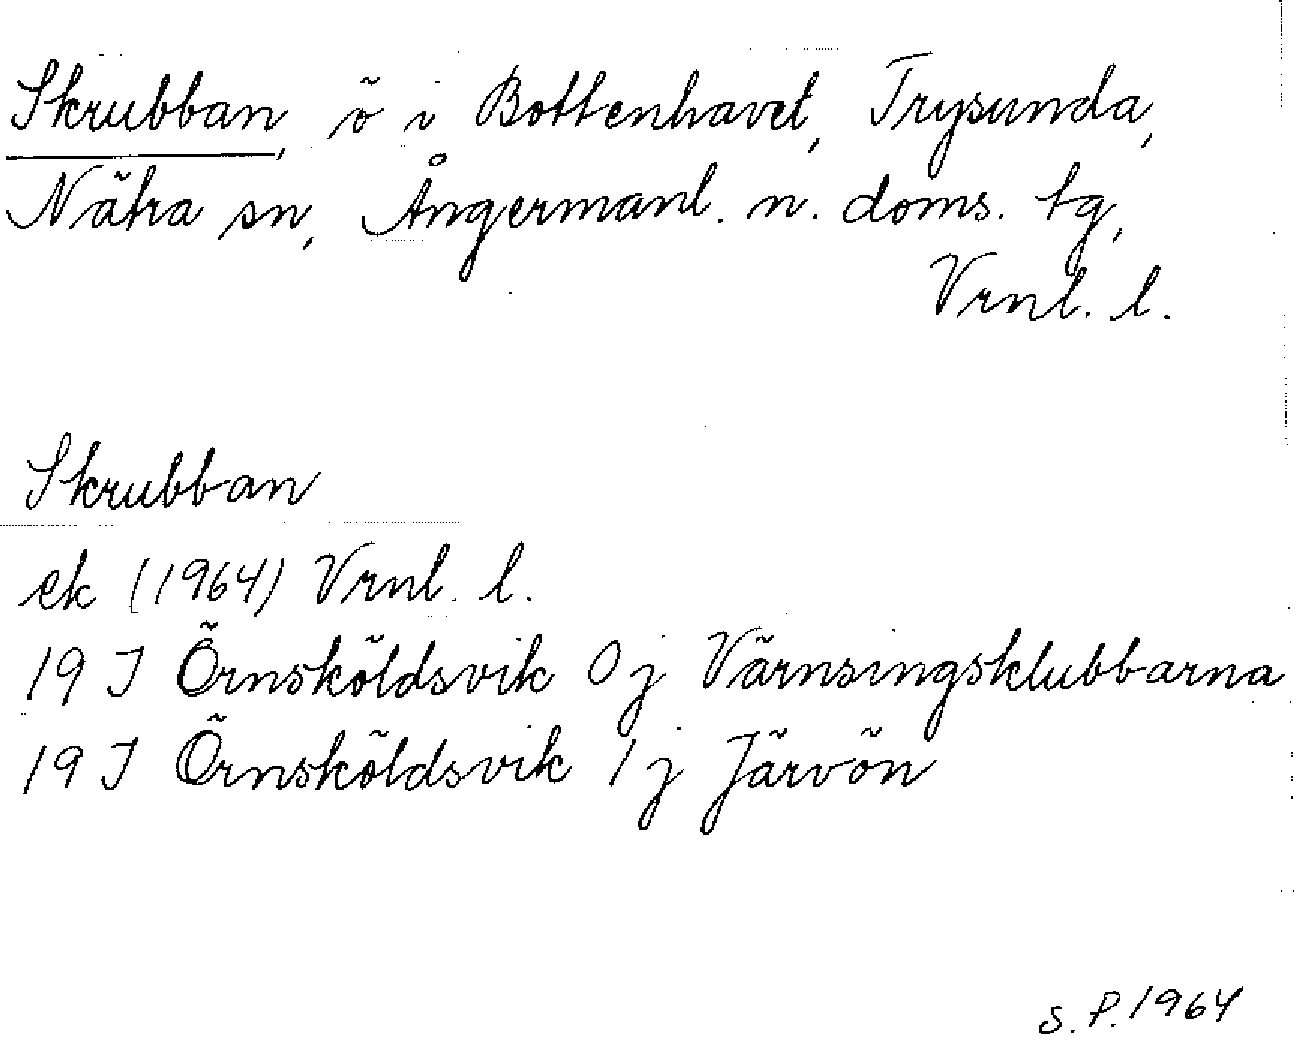 Skrubban, ö i Bottenhavet, Trysunda,
Nätra sn, Ångermanl. n. doms. tg,
Vrnl. l.
Skrubban
ek (1964) Vrnl. l.
19 I Örnsköldsvik 0 j Värnsingsklubbarna
19 I Örnsköldsvik 1 j Järvön
S. P. 1964